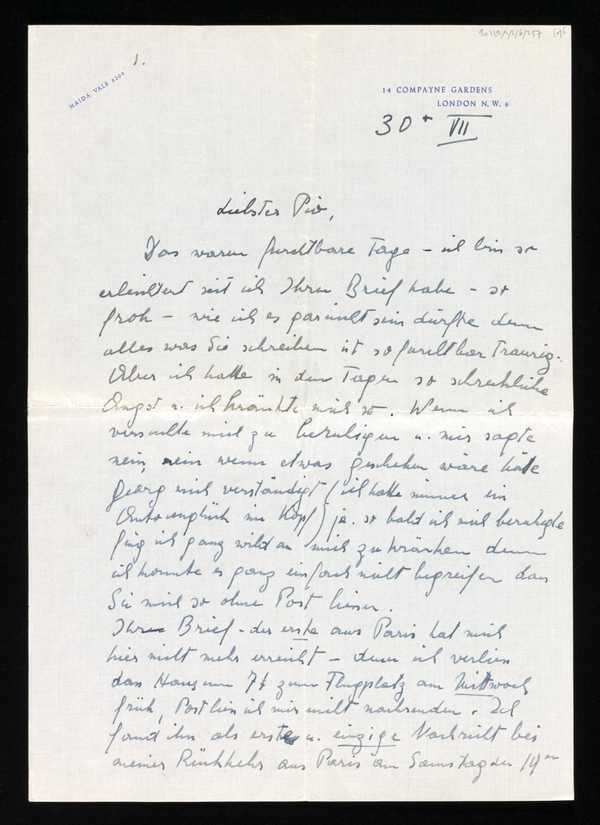 1.
MAIDA VALE 2204
14 COMPAYNE GARDENS
LONDON N.W. 6
30. VII
Liebster Piv,
Das waren furchtbare Tage – ich bin so
erleichtert seit ich Ihren Brief habe – so
froh – wie ich es gar nicht sein dürfte denn
alles was Sie schreiben ist so furchtbar traurig.
Aber ich hatte in den Tagen so schreckliche
Angst u. ich kränkte mich so. Wenn ich
versuchte mich zu beruhigen u. mir sagte
nein, nein wenn etwas geschehen wäre hätte
Georg mich verständigt (ich hatte immer ein
Autounglück im Kopf) ja. so bald ich mich beruhigte
fing ich ganz wild an mich zu kränken denn
ich konnte es ganz einfach nicht begreifen dass
Sie mich so ohne Post liessen.
Ihren Brief – der erste aus Paris hat mich
hier nicht mehr erreicht – denn ich verliess
das Haus um 7½ zum Flugplatz am Mittwoch
früh, Post liess ich mir nicht nachsenden. Ich
fand ihn als erste u. einzige Nachricht bei
meiner Rückkehr aus Paris am Samstag den 19ten